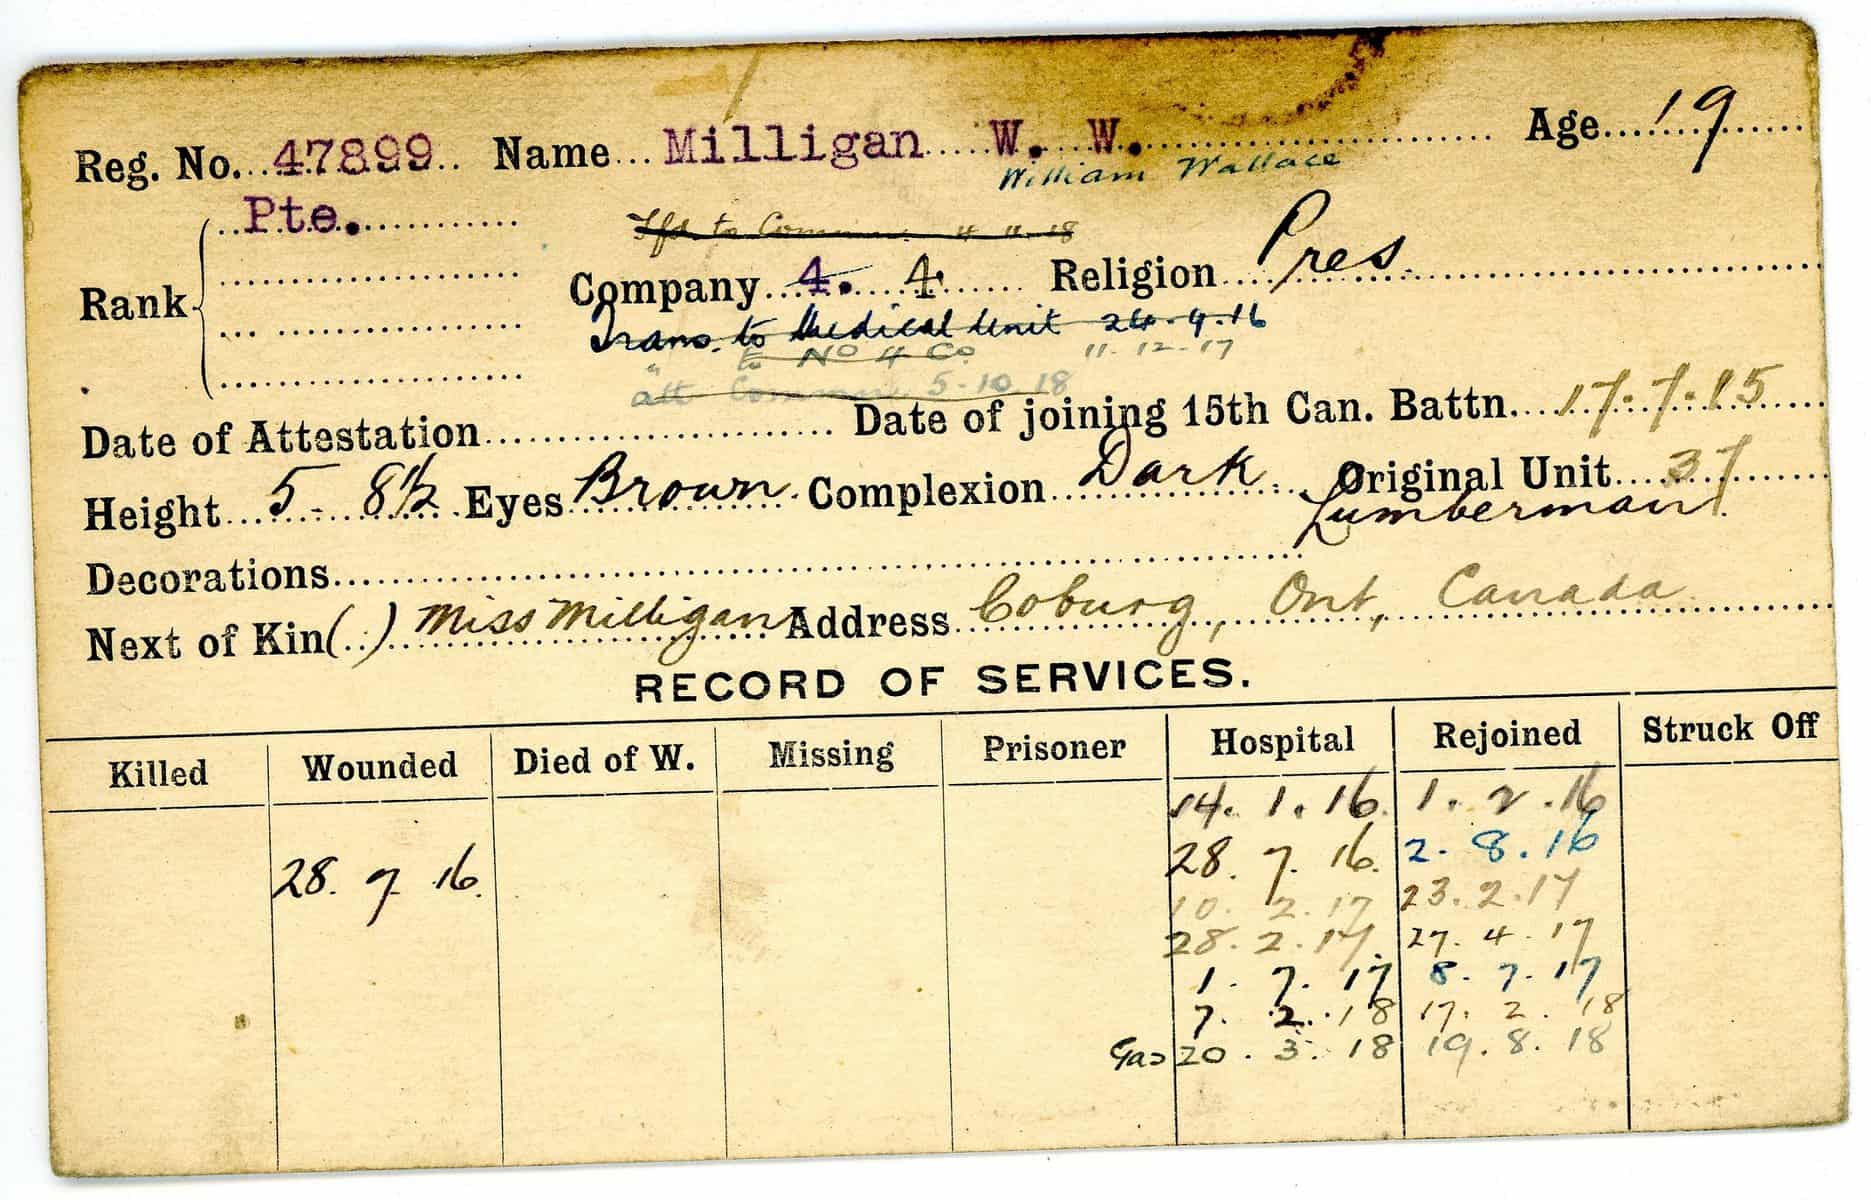 Reg. No. 47899 Name Milligan W. W. Age 19
William Wallace
Pte.
Tfd. to 4 11 18
Rank Company 4. 4 Religion Pres.
Trans. to Medical Unit 24.9.16
" to No 4 Co. 11.12.17
att 5.10.18
Date of Attestation Date of joining 15th Can. Battn. 17.7.15
Height 5-8½ Eyes Brown Complexion Dark Original Unit 37
Lumberman
Decorations
Next of Kin ( ) Miss Milligan Address Coburg, Ont, Canada
RECORD OF SERVICES.
Killed Wounded Died of W. Missing Prisoner Hospital Rejoined Struck Off
14.1.16 1.2.16
28.7.16. 28.7.16. 2.8.16
10.2.17 23.2.17
28.2.17 27.4.17
1.7.17 8.7.17
7.2.18 17.2.18
Gas 20.3.18 19.8.18